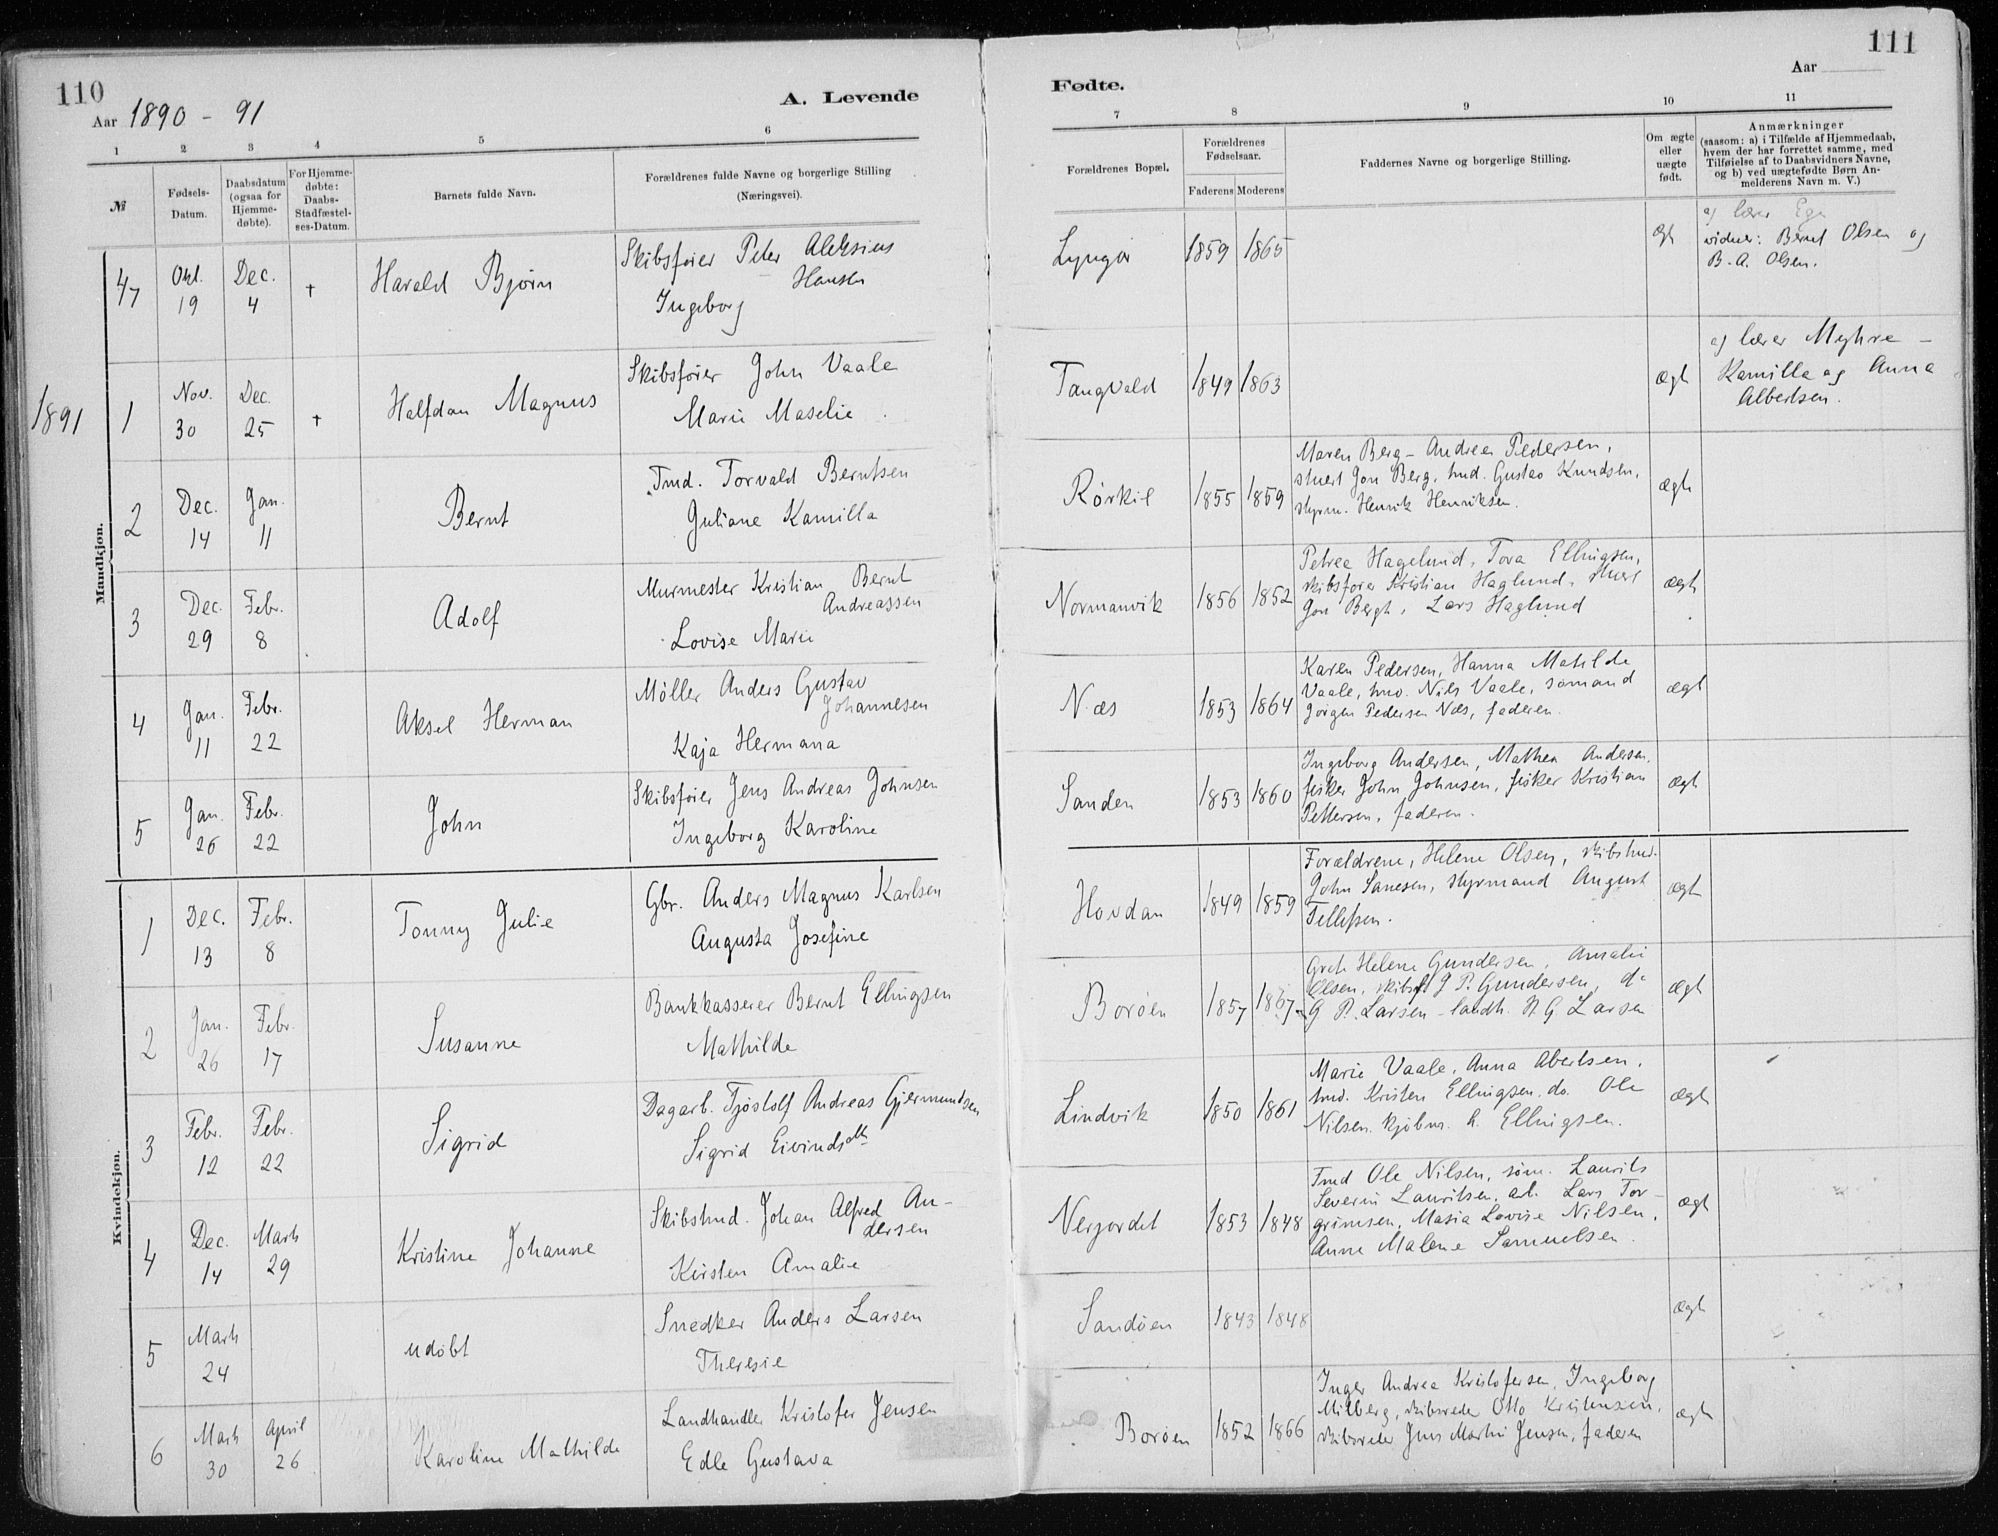 110
Aar 1890 - 91
A. Levende
1 2 3 4 5 6
№
Fødsels-Datum.
Daabsdatum (ogsaa for Hjemme-døbte).
For Hjemme-døbte: Daabs-Stadfæstel-ses-Datum.
Barnets fulde Navn.
Forældrenes fulde Navne og borgerlige Stilling
(Næringsvei).
111
Aar
Fødte.
7 8 9 10 11
Forældrenes Bopæl.
Forældrenes Fødselsaar.
Faderens Moderens
Faddernes Navne og borgerlige Stilling.
Om ægte eller uægte født.
Anmærkninger
(saasom: a) i Tilfælde af Hjemmedaab,
hvem der har forrettet samme, med
Tilføielse af to Daabsvidners Navne,
og b) ved uægtefødte Børn An-
melderens Navn m. V.)
Mandkjøn.
47 Okt. 19 Dec. 4 † Harald Bjørn
Skibsfører Peter Aleksius
Hansen
Ingeborg
Lyngør 1859 1865 ægt
a) lærer
vidner: Bernt Olsen og
B. A. Olsen.
1891
1 Nov. 30 Dec. 25 † Halfdan Magnus
Skibsfører John Vaale
Marie Maselie
Tangvald 1849 1863 ægt
a) lærer Myhre -
Kamilla og Anna
Albertsen.
2 Dec. 14 Jan. 11 Bernt
Tmd. Torvald Berntsen
Juliane Kamilla
Rørkil 1855 1859
Maren Berg - Andrea Pedersen,
stuert Jon Berg, tmd. Gustav Knudsen,
styrm. Henrik Henriksen.
ægt
3 Dec. 29 Febr. 8 Adolf
Murmester Kristian Bernt
Andreassen
Lovise Marie
Normanvik 1856 1852
Petrea Hagelund, Tora Ellingsen,
skibsfører Kristian Haglund, stuert
Jon Bergt, Lars Haglund
ægt
4 Jan. 11 Febr. 22 Aksel Herman
Møller Anders Gustav
Johannesen
Kaja Hermana
Næs 1853 1864
Karen Pedersen, Hanna Matilde
Vaale, tmd. Nils Vaale, sømand
Jørgen Pedersen Næs, faderen.
ægt
5 Jan. 26 Febr. 22 John
Skibsfører Jens Andreas Johnsen
Ingeborg Karoline
Sanden 1853 1860
Ingeborg Andersen, Mathea Andersen,
fisker John Johnsen, fisker Kristian
Pettersen, faderen.
ægt
Kvindekjøn.
1 Dec. 13 Febr. 8 Tonny Julie
Gbr. Anders Magnus Karlsen
Augusta Josefine
Hovdan 1849 1859
Forældrene, Helene Olsen, skibstmd.
John Sanesen, styrmand August
Tellefsen.
ægt
2 Jan. 26 Febr. 17 Susanne
Bankkasserer Bernt Ellingsen
Mathilde
Borøen 1857 1867
Grete Helene Gundersen, Amalie
Olsen, skibsf J P. Gundersen, do
G P. Larsen - landh. H. G. Larsen
ægt
3 Febr. 12 Febr. 22 Sigrid
Dagarb. Tjøstolf Andreas Gjermundsen
Sigrid Eivindsdtr
Lindvik 1850 1861
Marie Vaale, Anna Abertsen,
tmd. Kristen Ellingsen, do. Ole
Nilsen. kjøbm. h. Ellingsen.
ægt
4 Dec. 14 Marts 29 Kristine Johanne
Skibstmd. Johan Alfred An-
dersen
Kirsten Amalie
Nerjordet 1853 1848
Tmd Ole Nilsen, søm. Laurits
Severin Lauritsen, arb. Lars Tor-
grimsen, Masia Lovise Nilsen,
Anne Malene Samuelsen.
ægt
5 Marts 24 udøbt
Snedker Anders Larsen
Theresie
Sandøen 1843 1848 ægt
6 Marts 30 April 26 Karoline Mathilde
Landhandler Kristofer Jensen
Edle Gustava
Borøen 1852 1866
Inger Andrea Kristofersen, Ingeborg
Milberg, skibsreder Otto Kristensen,
skibsreder Jens Martin Jensen, faderen
ægt